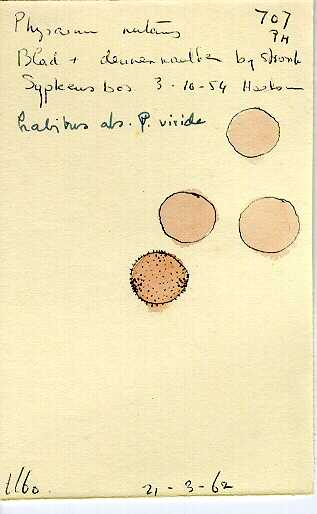 Physarum nutans
707
PH
Blad + dennenaalden bij stronk
Sypkensbos 3-10-54
habitus als P. viride
1160.
21-3-62